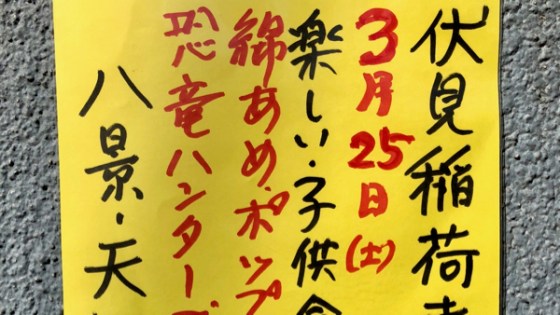 伏見稲荷
3月25日(土)
楽しい・子供会
綿あめ・ポップ
恐竜ハンター
八景・天